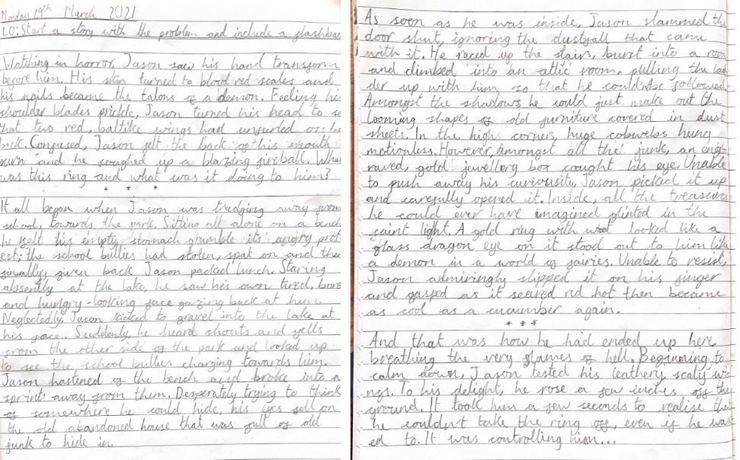 Monday 29th March 2021
LO: Start a story with the problem and include a flashbac
Watching in horror, Jason saw his hand transform
before him. His skin turned to blood red scales and
his nails became the talons of a demon. Feeling his
shoulder blades prickle, Jason turned his head to se
that two red, batlike wings had unfurled on his
back. Confused, Jason felt the back of his mouth
burn and he coughed up a blazing fireball. What
was this ring and what was it doing to him?
* * *
It all began when Jason was trudging away from
school, towards the park. Sitting all alone on a bench
he felt his empty stomach grumble its angry prot
est: the school bullies had stolen, spat on and then
finally given back Jason packed lunch. Staring
absently at the lake, he saw his own tired, bore
and hungry-looking face gazing back at him.
Neglectedly, Jason kicked to gravel into the lake at
his face. Suddenly, he heard shouts and yells
from the other side of the park and looked up
to see the school bullies charging towards him.
Jason hastened of the bench and broke into a
sprint away from them. Desperately trying to think
of somewhere he could hide, his eyes fell on
the old abandoned house that was full of old
junk to hide in.
As soon as he was inside, Jason slammed the
door shut, ignoring the dustfall that came
with it. He raced up the stairs, burst into a room
and climbed into an attic room, pulling the lad
der up with him so that he couldn't be followed.
Amongst the shadows he could just make out the
looming shapes of old furniture covered in dust
sheets. In the high corners, huge cobwebs hung
motionless. However, amongst all the junk, an eng
raved, gold jewellery box caught his eye. Unable
to push away his curiousity, Jason picked it up
and carefully opened it. Inside, all the treasures
he could ever have imagined glinted in the
faint light. A gold ring with looked like a
glass dragon eye on it stood out to him like
a demon in a world of fairies. Unable to resist,
Jason admiringly slipped it on his finger
and gasped as it seared red hot then became
as cool as a cucumber again.
* * *
And that was how he had ended up here
breathing the very flames of hell. Beginning to
calm down, Jason tested his leathery, scaly wi
ngs. To his delight, he rose a few inches off the
ground. It took him a few seconds to realise that
he couldn't take the ring off, even if he want
ed to. It was controlling him...